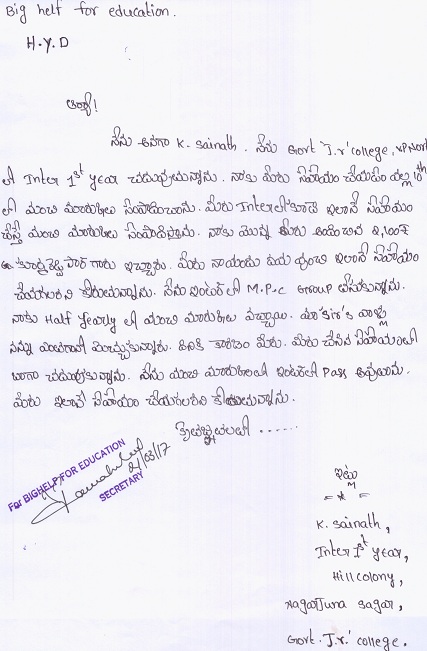 Big helf for education.
H.Y.D
ఆర్యా!
నేను అనగా K. Sainath. నేను Govt J.r' college,
లో Inter 1st year చదువుచున్నాను. నాకు మీరు సహాయం చేయడం వల్ల 10th
లో మంచి మార్కులు సంపాదించాను. మీరు Inter లో కూడా ఇలానే సహాయం
చేస్తే మంచి మార్కులు సంపాదిస్తాను. నాకు మొన్న మీరు అందించిన
సార్ గారు ఇచ్చారు. మీరు నాయందు దయ వుంచి ఇలానే సహాయం
చేయగలరని కోరుచున్నాను. నేను ఇంటర్ లో M.P.C Group తీసుకున్నాను.
నాకు Half Yearly లో మంచి మార్కులు వచ్చాయి. మా sir's వాళ్ళు
నన్ను ఎంతగానో మెచ్చుకున్నారు. దీనికి కారణం మీరు. మీరు చేసిన సహాయంతో
బాగా చదువుకున్నాను. నేను మంచి మార్కులతో ఇంటర్ లో Pass అవుతాను.
మీరు ఇలానే సహాయం చేయగలరని కోరుచున్నాను.
కృతజ్ఞతలతో ......
For BIGHELP FOR EDUCATION
21/03/17
SECRETARY
ఇట్లు
= * =
K. Sainath,
Inter 1st year,
Hill colony,
Nagarjuna sagar,
Govt. J.r.' college.